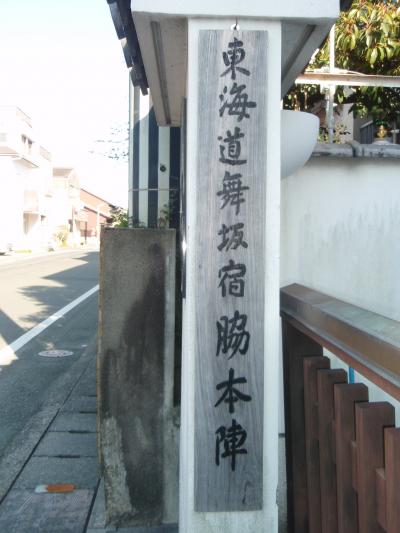 東海道舞坂宿脇本陣